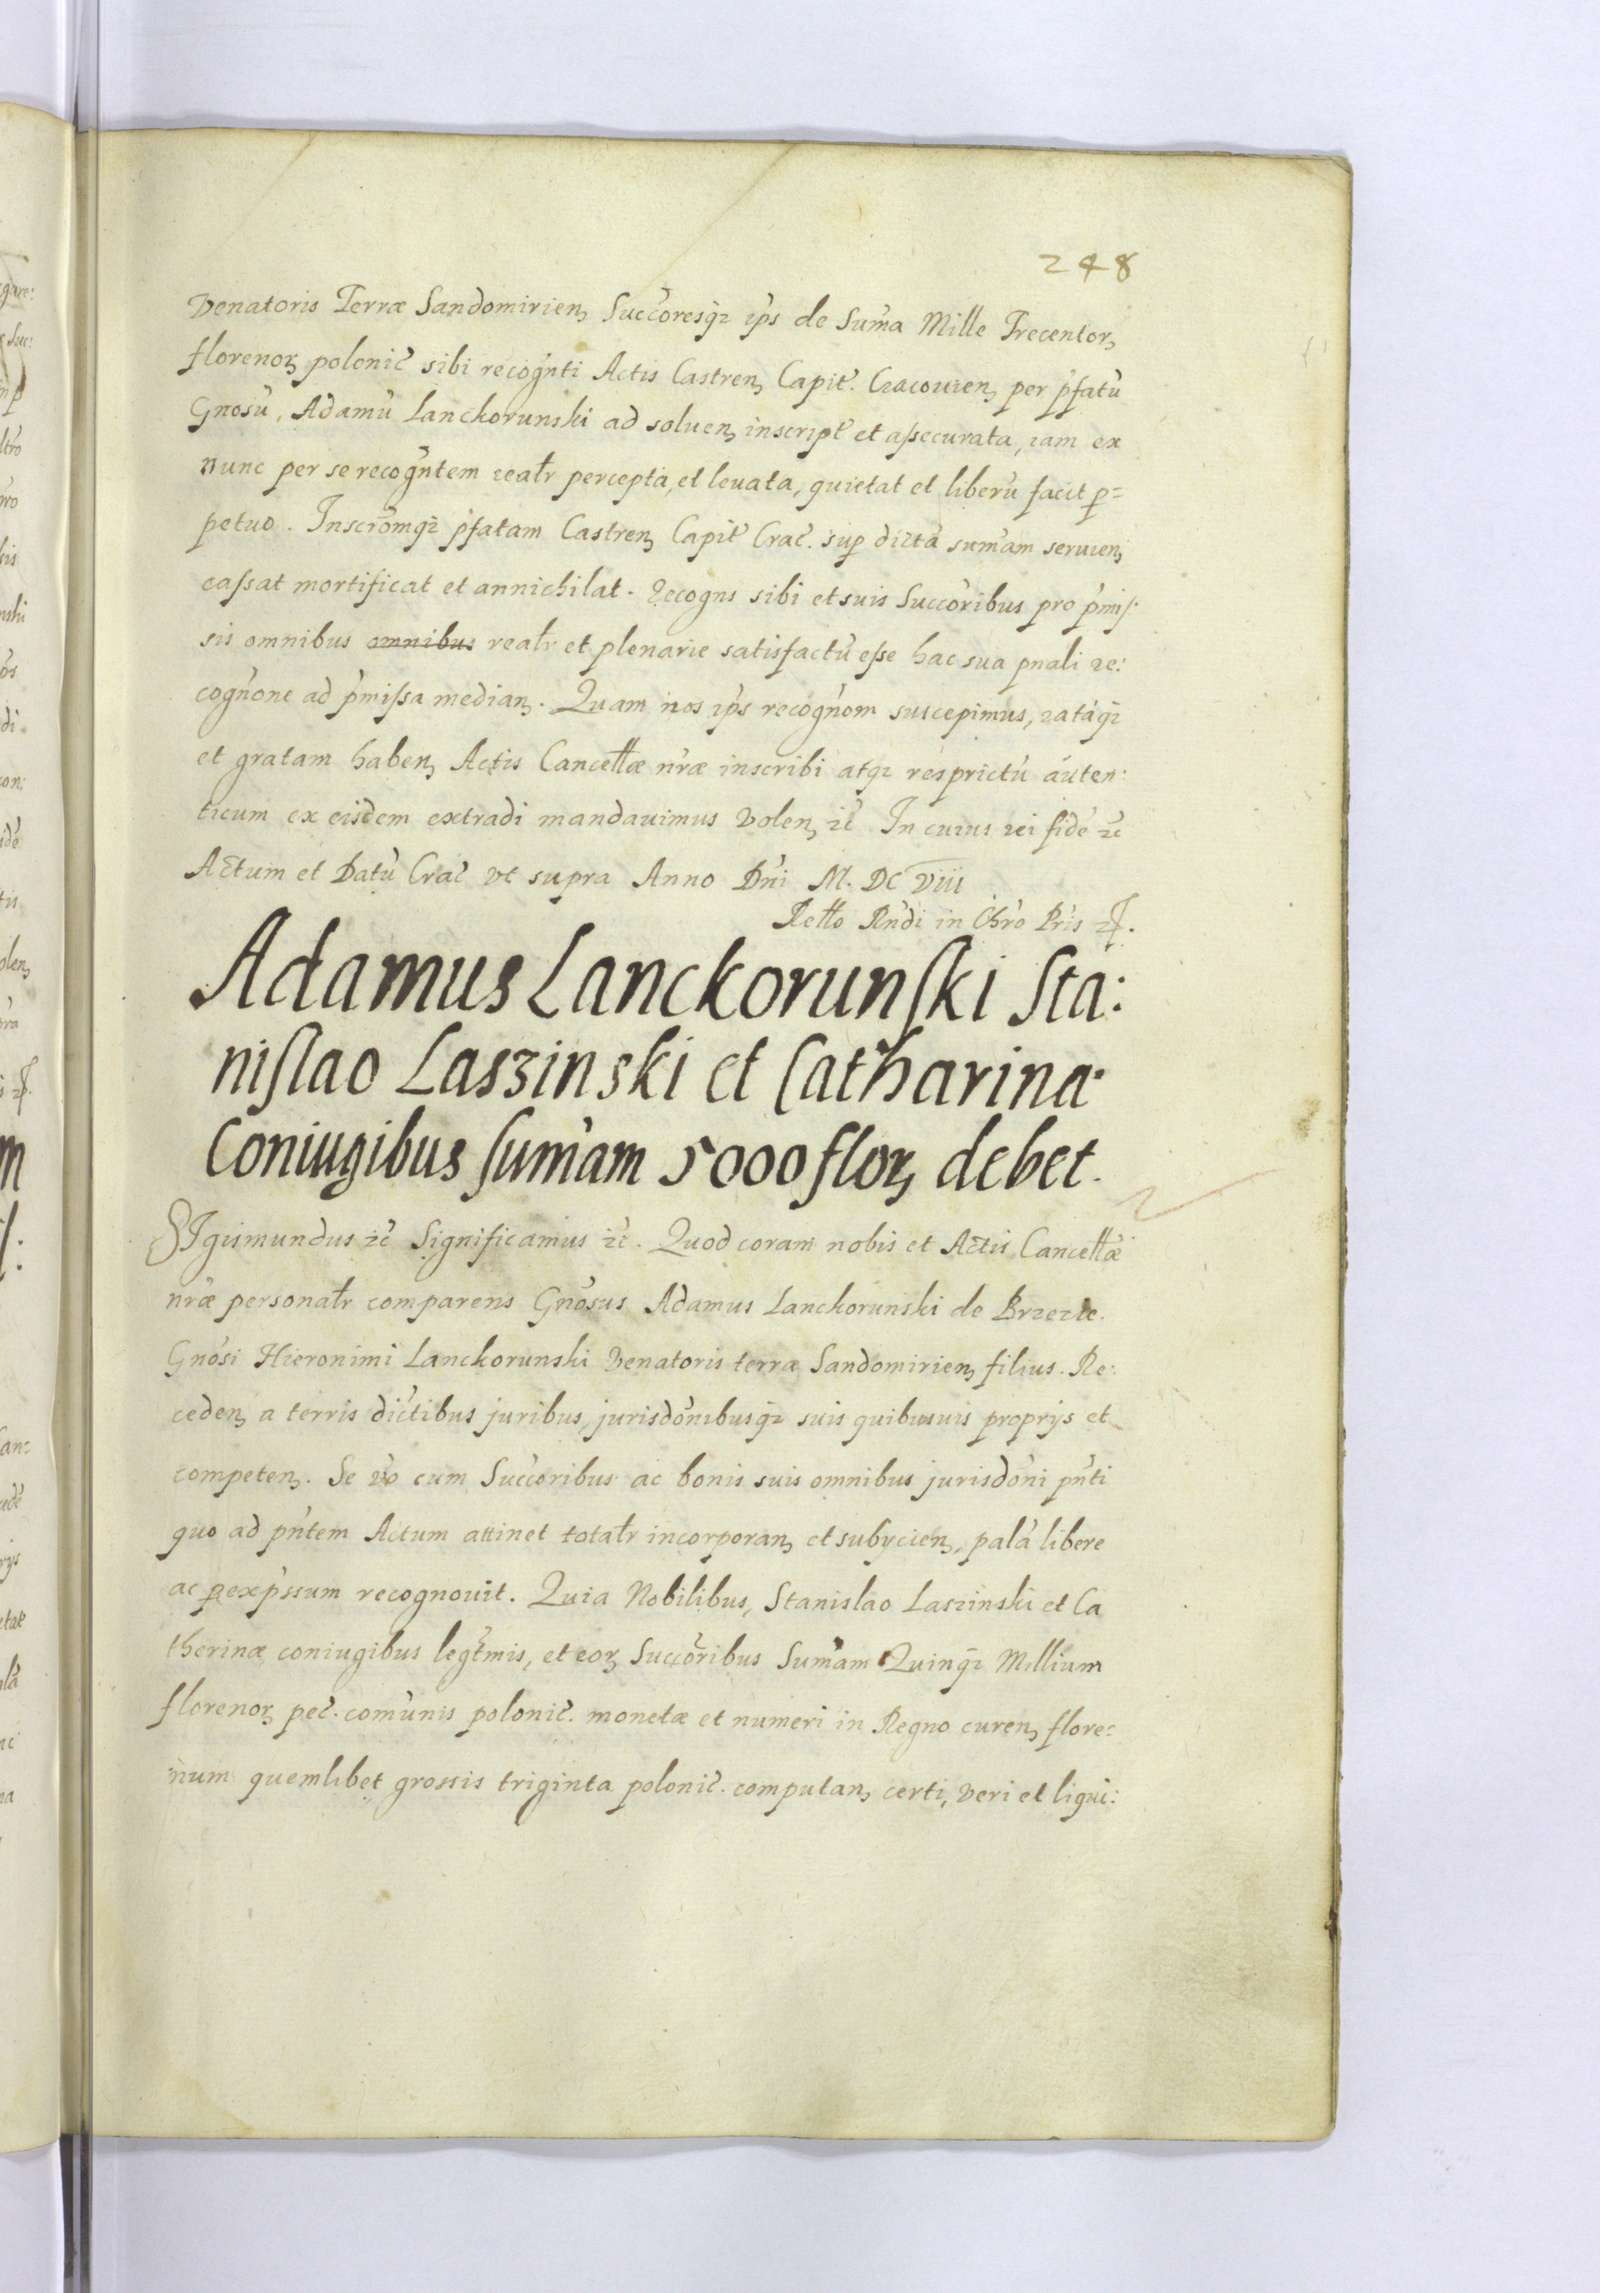 248
Venatoris Terræ Sandomirien̄ Succ̄oresq̄ ip̄s de Sum̄a Mille Trecentor̄
florenor̄ polonic̄ sibi recogn̄ti Actis Castren̄ Capit̄. Cracovien̄ per p̄fatū
Gnosū, Adamū Lanckorunski ad soluen̄ inscript̄ et aſsecurata, iam ex
nunc per se recogn̄tem realr̄ percepta, et leuata, quietat et liberū facit p=
petuo. Inscr̄omq̄ p̄fatam Castren̄ Capit̄ Crac̄. sup dictā sum̄am seruien̄
caſsat mortificat et annichilat. Recogns sibi et suis Succ̄oribus pro p̄miſ:
sis omnibus omnibus realr̄ et plenarie satisfactū eſse hac sua pnali re:
cogn̄one ad p̄miſsa median̄. Quam nos ip̄s recogn̄om suscepimus, ratāq̄
et gratam haben̄ Actis Cancell̄æ nr̄æ inscribi atq̄ resprictū auten:
ticum ex eisdem extradi mandauimus Volen̄ zc̄ In cuius rei fidē zc̄
Actum et Datū Crac̄ vt supra Anno Dn̄i M. DC VIII
Rell̄o Rn̄di in Chr̄o Pr̄is
Adamus Lanckorunſki Sta:
niſlao Laszinski et Catharina
Coniugibus ſum̄am 5000 flor̄ debet.
SIgismundus zc̄ Significamus zc̄. Quod coram nobis et Actis Cancell̄æ
nr̄æ personalr̄ comparens Gn̄osus Adamus Lanckorunski de Brzezie.
Gn̄osi Hieronimi Lanckorunski Venatoris terra Sandomirien̄ filius. Re:
ceden̄ a terris dic̄tibus juribus, jurisdōnibusq̄ suis quibusuis proprijs et
competen̄. Se v̄o cum Succ̄oribus ac bonis suis omnibus jurisdōni pn̄ti
quo ad pn̄tem Actum attinet totalr̄ incorporan̄ et subycien̄, palā libere
ac p exp̄ssum recognouit. Quia Nobilibus, Stanislao Laszinski et Ca
therinæ coniugibus legt̄mis, et eor̄ Succ̄oribus Sum̄am Quinq̄ Millium
florenor̄ pec̄. com̄unis polonic̄. monetæ et numeri in Regno curen̄ flore:
num quemlibet grossis triginta polonic̄. computan̄ certi, veri et liqui: